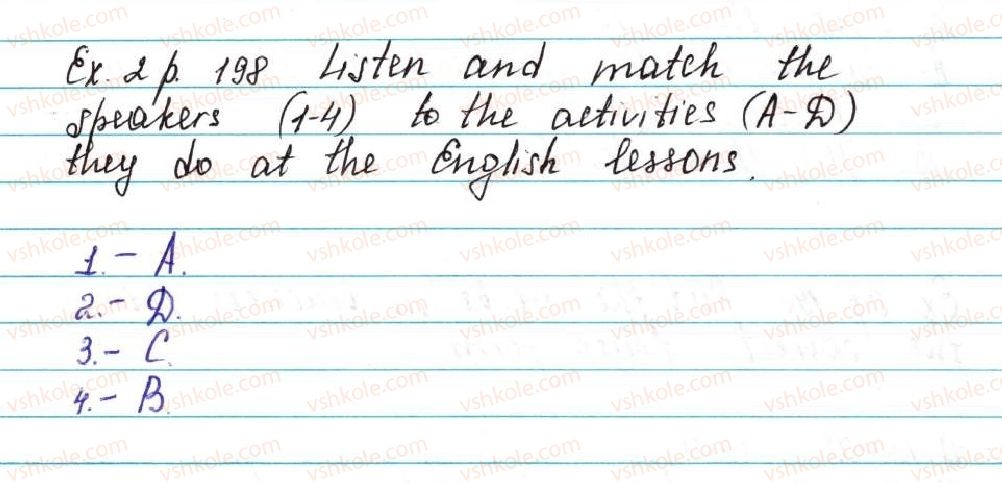 Ex. 2 p. 198 Listen and match the
speakers (1-4) to the activities (A-D)
they do at the English lessons.
1. - A.
2. - D.
3. - C.
4. - B.
vshkole.com